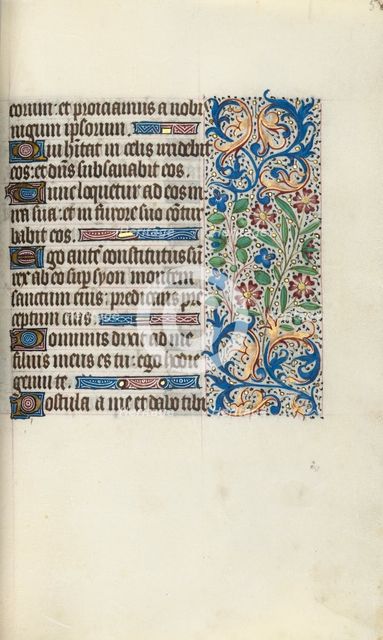 eorum: et proiciamus a nobis
iugum ipsorum.
Qui habitat in celis irridebit
eos: et dñs subsanabit eos.
Tunc loquetur ad eos in
ira sua: et in furore suo contur
babit eos.
Ego autē constitutus sū
rex ab eo sup syon montem
sanctum eius: predicans pre
ceptum eius.
Dominus dixit ad me
filius meus es tu: ego hodie
genui te.
Postula a me et dabo tibi